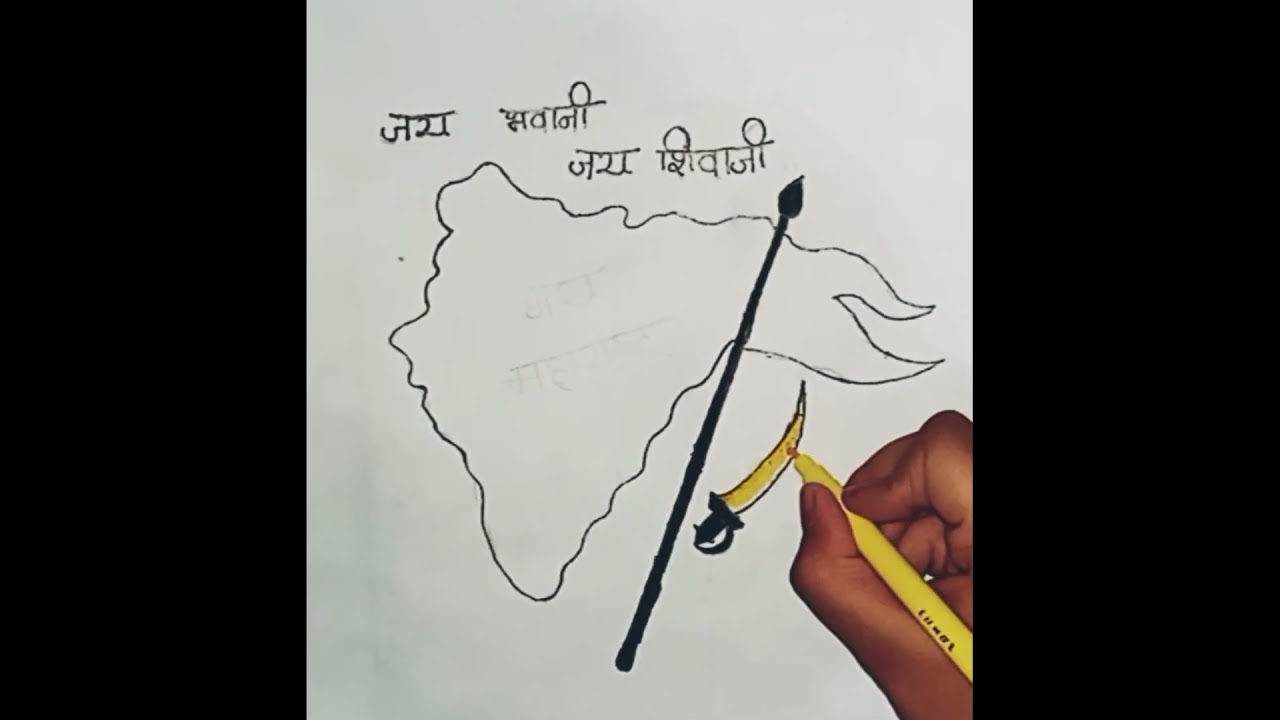 जय भवानी
जय शिवाजी
जय
Luxor